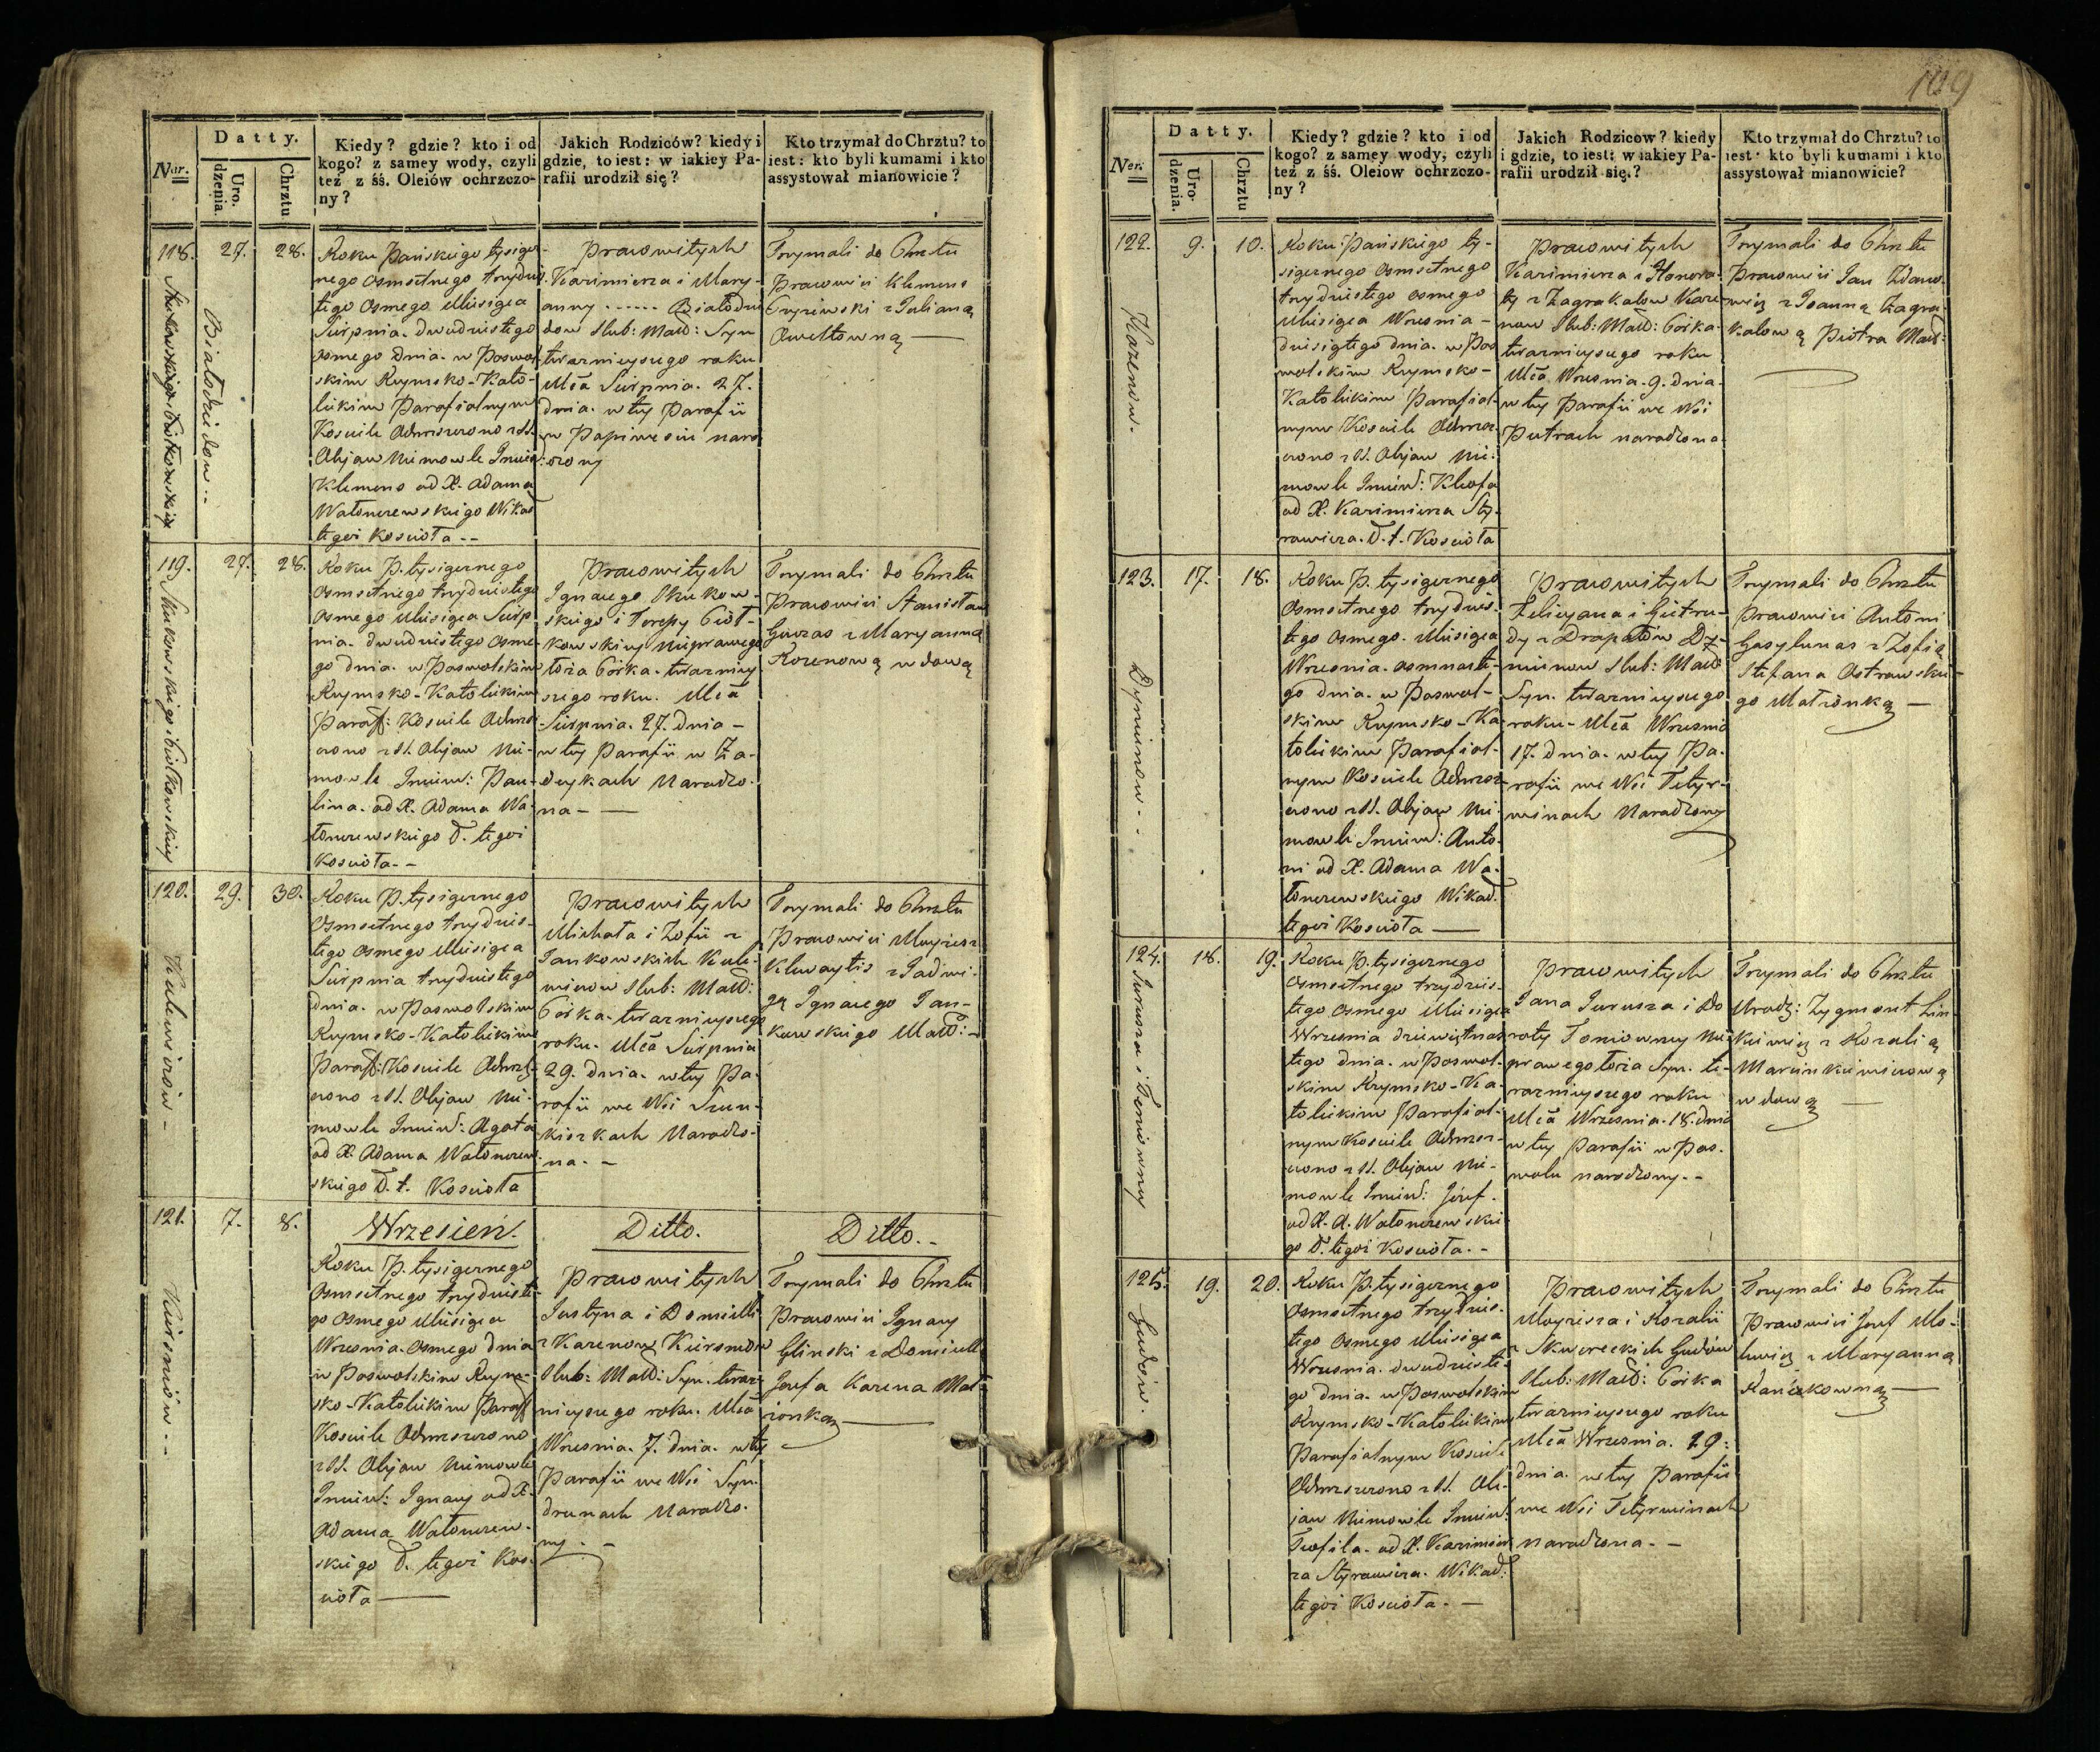 109
Nur.
Datty.
Uro-
dzenia.
Chrztu
Kiedy? gdzie? kto i od
kogo? z samey wody, czyli
też z śś. Oleiów ochrzczo-
ny?
Jakich Rodziców? kiedy i
gdzie, to iest: w iakiey Pa-
rafii urodził się?
Kto trzymał do Chrztu? to
iest: kto byli kumami i kto
assystował mianowicie?
118.
Białodziedow..
27.
28.
Roku Pańskiego tysiącz-
nego Osmsetnego trzydzies
tego Osmego Miesiąca
Sierpnia. dwudziestego
Osmego Dnia. w Poswol-
skim Rzymsko-Kato-
lickim Parafialnym
Kosciele Ochrzczono z SS.
Olejow Niemowle Imien:
Klemens od X. Adama
Wałonczewskiego Wikar
tegoż Kosciota--
Prawowitych
Kazimierza i Mary-
anny ------ Białodzie
dow Slub: Małż: Syn
terazniejszego roku
Mca Sierpnia. 27.
dnia. w tey Parafii
w Papiwesiu naro
dzony
Trzymali do Chrztu
Prawowici Klemens
i Julianą
119.
Skukowskiego i Ciotkowskiey
27.
28.
Roku P. tysiącznego
Osmsetnego trzydziestego
Osmego Miesiąca Sierp
nia. dwudziestego Osme-
go dnia. w Poswolskim
Rzymsko-Katolickim
Paraf: Kosciele Ochrz
czono z SS. Olejow Nie-
mowle Imien: Pau-
lina. od X. Adama Wa-
łonczewskiego W. tegoż
Kosciota.-
Prawowitych
Ignacego Skukow-
skiego i Terezy Ciot-
kowskiey Nieprawego
łoża Corka. terazniey
szego roku. Mca
Sierpnia. 27. dnia-
w tey Parafii w Za-
deykach Narodzo-
na--
Trzymali do Chrztu
Prawowici Stanisław
z Maryanną
Kozenową wdową
120.
Kalewiczow-
29.
30.
Roku P. tysiącznego
Osmsetnego trzydzies-
tego Osmego Miesiąca
Sierpnia trzydziestego
dnia. w Poswolskim
Rzymsko-Katolickim
Paraf: Kosciele Ochrz
czono z SS. Olejow Nie-
mowle Imien: Agata
od X. Adama Wałonczew
skiego W. t. Kosciota
Prawowitych
Michała i Zofii z
Jankowskich Kale-
wiczow Slub: Małż:
Corka. terazniejszego
roku. Mca Sierpnia
29. dnia. w tey Pa-
rafii we Wsi Szun-
kiszkach Narodzo-
na.-
Trzymali do Chrztu
Prawowici Moyżesz
Klwaytis z Jadwi-
gą Ignacego Jan-
kowskiego Małż:-
121.
Kiersnow.-
7.
8.
Wrzesień.
Roku P. tysiącznego
Osmsetnego trzydzieste-
go Osmego Miesiąca
Wrzesnia. Osmego dnia
w Poswolskim Rzym-
sko-Katolickim Paraf
Kosciele Ochrzczono
z SS. Olejow Niemowle
Imien: Ignacy od X.
Adama Wałonczew-
skiego W. tegoż Kos-
ciota
Ditto.
Prawowitych
Justyna i Domicelli
z Karenow Kiersnow
Slub: Małż: Syn. teraz-
niejszego roku. Mca
Wrzesnia. 7. dnia. w tey
Parafii we Wsi Syn-
drunach Narodzo-
ny.-
Ditto.-
Trzymali do Chrztu
Prawowici Ignacy
Glinski z Domicellą
Jozefa Karena Mał-
żonką
Ner.
Datty.
Uro-
dzenia.
Chrztu
Kiedy? gdzie? kto i od
kogo? z samey wody, czyli
też z śś. Oleiow ochrzczo-
ny?
Jakich Rodzicow? kiedy
i gdzie, to iest: w iakiey Pa-
rafii urodził się.?
Kto trzymał do Chrztu? to
iest: kto byli kumami i kto
assystował mianowicie?
122.
Karenow.
9.
10.
Roku Pańskiego ty-
siącznego Osmsetnego
trzydziestego Osmego
Miesiąca Wrzesnia-
dziesiątego dnia. w Pos
wolskim Rzymsko-
Katolickim Parafial-
nym Kosciele Ochrz
czono z SS. Olejow Nie-
mowle Imien: Kleofa
od X. Kazimierza Sty-
rawicza. W. t. Kosciota
Prawowitych
Kazimierza i Honora-
ty z Zagrakalow Kare
now Slub: Małż: Corka
terazniejszego roku
Mca Wrzesnia. 9. dnia.
w tey Parafii we Wsi
Putrach narodzona
Trzymali do Chrztu
Prawowici Jan Zdano-
wicz z Joanną Zagra-
kalową Piotra Małż:
123.
Dyminow.-
17.
18.
Roku P. tysiącznego
Osmsetnego trzydzies-
tego Osmego. Miesiąca
Wrzesnia. osmnaste-
go dnia. w Poswol-
skim Rzymsko-Ka-
tolickim Parafial-
nym Kosciele Ochrz-
czono z SS. Olejow Nie-
mowle Imien: Anto-
ni od X. Adama Wa-
łonczewskiego Wikar.
tegoż Kosciota
Prawowitych
Felicyana i Giertru-
dy z Drapałow Dy-
minow Slub: Małż
Syn. terazniejszego
roku- Mca Wrzesnia
17. dnia. w tey Pa-
rafii we Wsi Tetyr-
winach Narodzony
Trzymali do Chrztu
Prawowici Antoni
Gasylunas z Zofią
Stefana Ostrowskie-
go Małżonką-
124.
Jurusza i Toniowny
18.
19.
Roku P. tysiącznego
Osmsetnego trzydzies-
tego Osmego Miesiąca
Wrzesnia dziewiętnas
tego dnia. w Poswol-
skim Rzymsko-Ka-
tolickim Parafial-
nym Kosciele Ochrz-
czono z SS. Olejow Nie-
mowle Imien: Józef.
od X. A. Wałonczewskie
go W. tegoż Kosciota.-
Prawowitych
Jana Jurusza i Do
roty Toniowney Nie
prawego łoża Syn. te-
razniejszego roku
Mca Wrzesnia. 18. dnia
w tey Parafii w Pos-
wolu narodzony.-
Trzymali do Chrztu
Urodz: Zygmont Lin-
kiewicz z Rozalią
Marcinkiewiczową
wdową
125.
Gudow.
19.
20.
Roku P. tysiącznego
Osmsetnego trzydzies-
tego Osmego Miesiąca
Wrzesnia. dwudzieste-
go dnia. w Poswolskim
Rzymsko-Katolickim
Parafialnym Kosciele
Ochrzczono z SS. Ole-
jow Niemowle Imien:
Teofila. od X. Kazimier
za Styrawicza. Wikar:
tegoż Kosciota.-
Prawowitych
Moyżesza i Rozalii
z Skwereckich Gudow
Slub: Małż: Corka
terazniejszego roku
Mca Wrzesnia. 19.
dnia. w tey Parafii
we Wsi Tetyrwinach
narodzona.-
Trzymali do Chrztu
Prawowici Jozef
z Maryanną